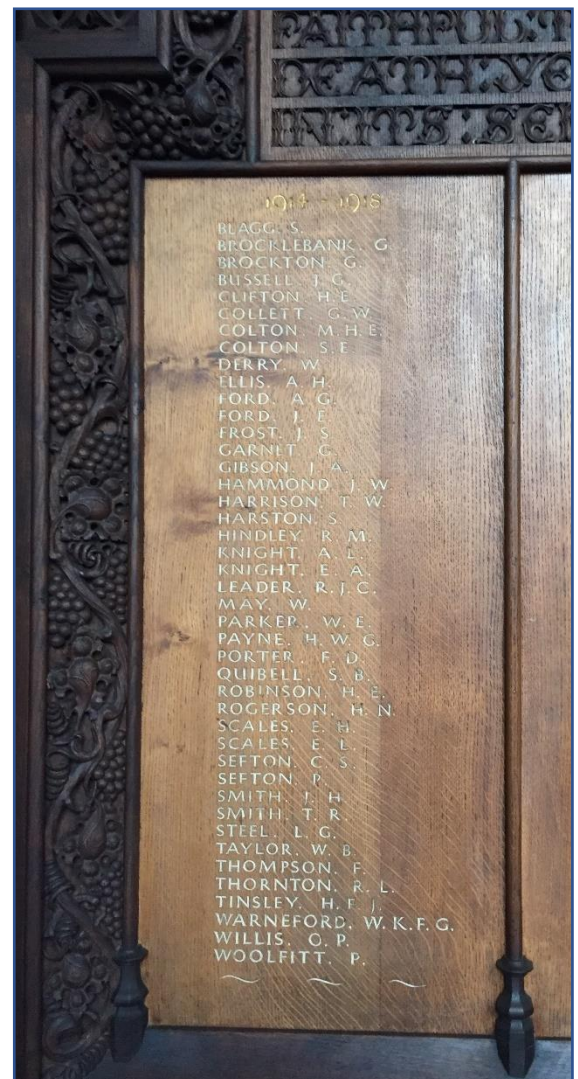 FAITHFUL:
DEATH:
IN:ITS:
1914 - 1918
BLAGG. S.
BROCKLEBANK. G.
BROCKTON. G.
BUSSELL. J. G.
CLIFTON. H. E.
COLLETT. G. W.
COLTON. M. H. E.
COLTON. S. E.
DERRY. W.
ELLIS. A. H.
FORD. A. G.
FORD. J. E.
FROST. J. S.
GARNET. G.
GIBSON. J. A.
HAMMOND. J. W.
HARRISON. T. W.
HARSTON. S.
HINDLEY. R. M.
KNIGHT. A. L.
KNIGHT. E. A.
LEADER. R. J. C.
MAY. W.
PARKER. W. E.
PAYNE. H. W. G.
PORTER. F. D.
QUIBELL. S. B.
ROBINSON. H. E.
ROGERSON. H. N.
SCALES. E. H.
SCALES. E. L.
SEFTON. C. S.
SEFTON. P.
SMITH. J. H.
SMITH. T. R.
STEEL. L. G.
TAYLOR. W. B.
THOMPSON. F.
THORNTON. R. L.
TINSLEY. H. F. J.
WARNEFORD. W. K. F. G.
WILLIS. O. P.
WOOLFITT. P.